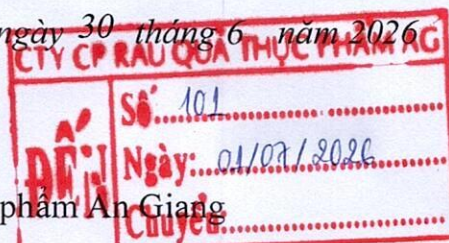 ngày 30 tháng 6 năm 2026
CTY CP RAU QUẢ THỰC PHẨM AG
ĐẾN
Số: 101
Ngày: 01/07/2026
phẩm An Giang
Chuyển: